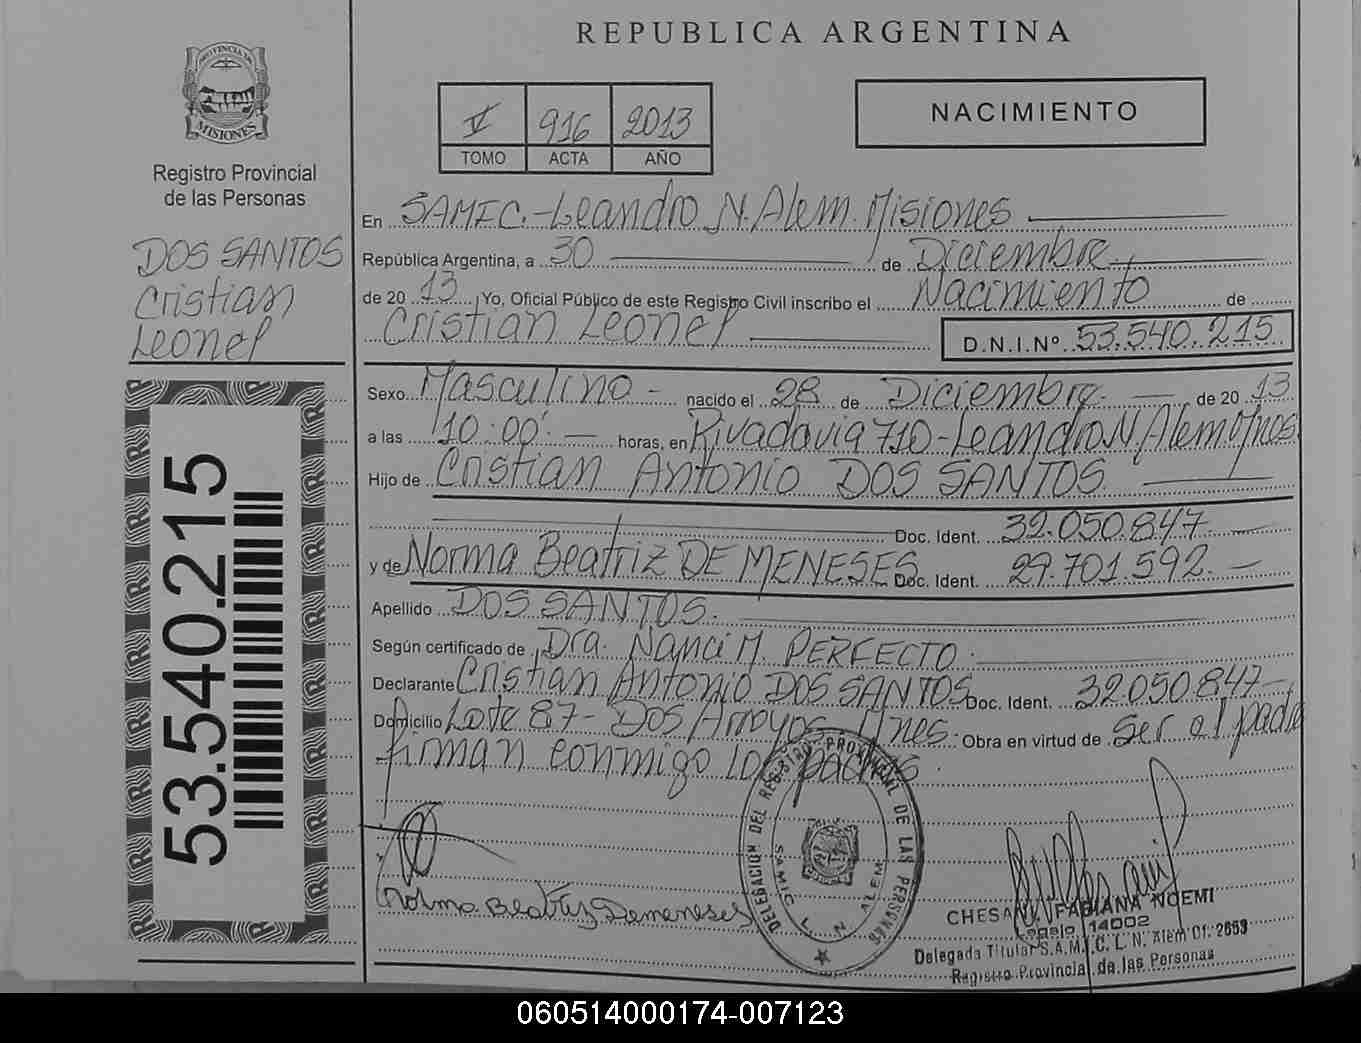 REPUBLICA ARGENTINA
PROVINCIA DE
MISIONES
Registro Provincial
de las Personas
DOS SANTOS
Cristian
Leonel
53.540.215
V 916 2013
TOMO ACTA AÑO
NACIMIENTO
En SAMIC.-Leandro N. Alem. Misiones
República Argentina, a 30 de Diciembre
de 20 13 Yo, Oficial Público de este Registro Civil inscribo el Nacimiento de
Cristian Leonel D.N.I.Nº 53.540.215
Sexo Masculino - nacido el 28 de Diciembre de 20 13
a las 10:00' horas, en Rivadavia 710-Leandro N. Alem Mnes.
Hijo de Cristian Antonio DOS SANTOS
Doc. Ident. 32.050.847
y de Norma Beatriz DE MENESES Doc. Ident. 29.701.592.
Apellido DOS SANTOS.
Según certificado de Dra. Nanci M. PERFECTO.
Declarante Cristian Antonio DOS SANTOS Doc. Ident. 32050.847
Domicilio Lote 87- Dos Arroyos Mnes. Obra en virtud de Ser el padre
firman conmigo los padres.
Norma Beatriz Demeneses
DELEGACION DEL REGISTRO PROVINCIAL DE LAS PERSONAS
SAMIC L. N. ALEM
CHESANI, FABIANA NOEMI
Legajo 14002
Delegada Titular S.A.M.I.C. L. N. Alem Of. 2653
Registro Provincial de las Personas
060514000174-007123